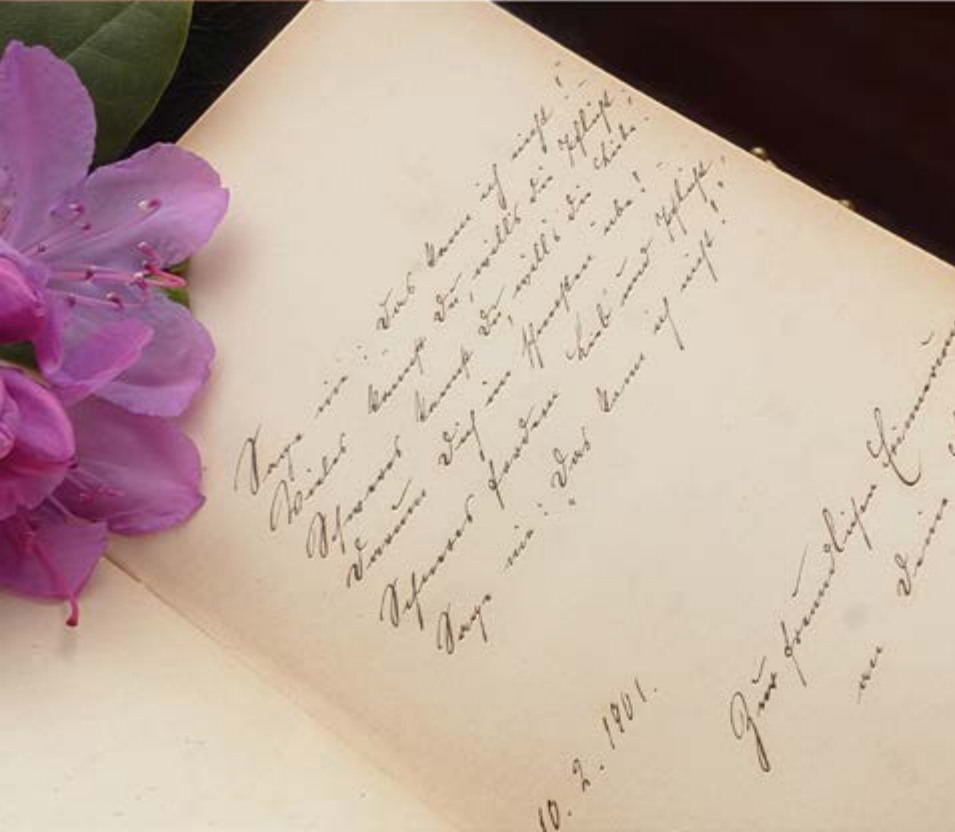 Sage nie: „Das kann ich nicht!"
Vieles kannst Du, will's die Pflicht,
Schweres kannst Du, will's die Liebe.
Darum Dich im Schwersten übe!
Schweres fordern Lieb' und Pflicht,
Sage nie: „Das kann ich nicht!"
Zur freundlichen Erinnerung
an Deine
10. 2. 1901.